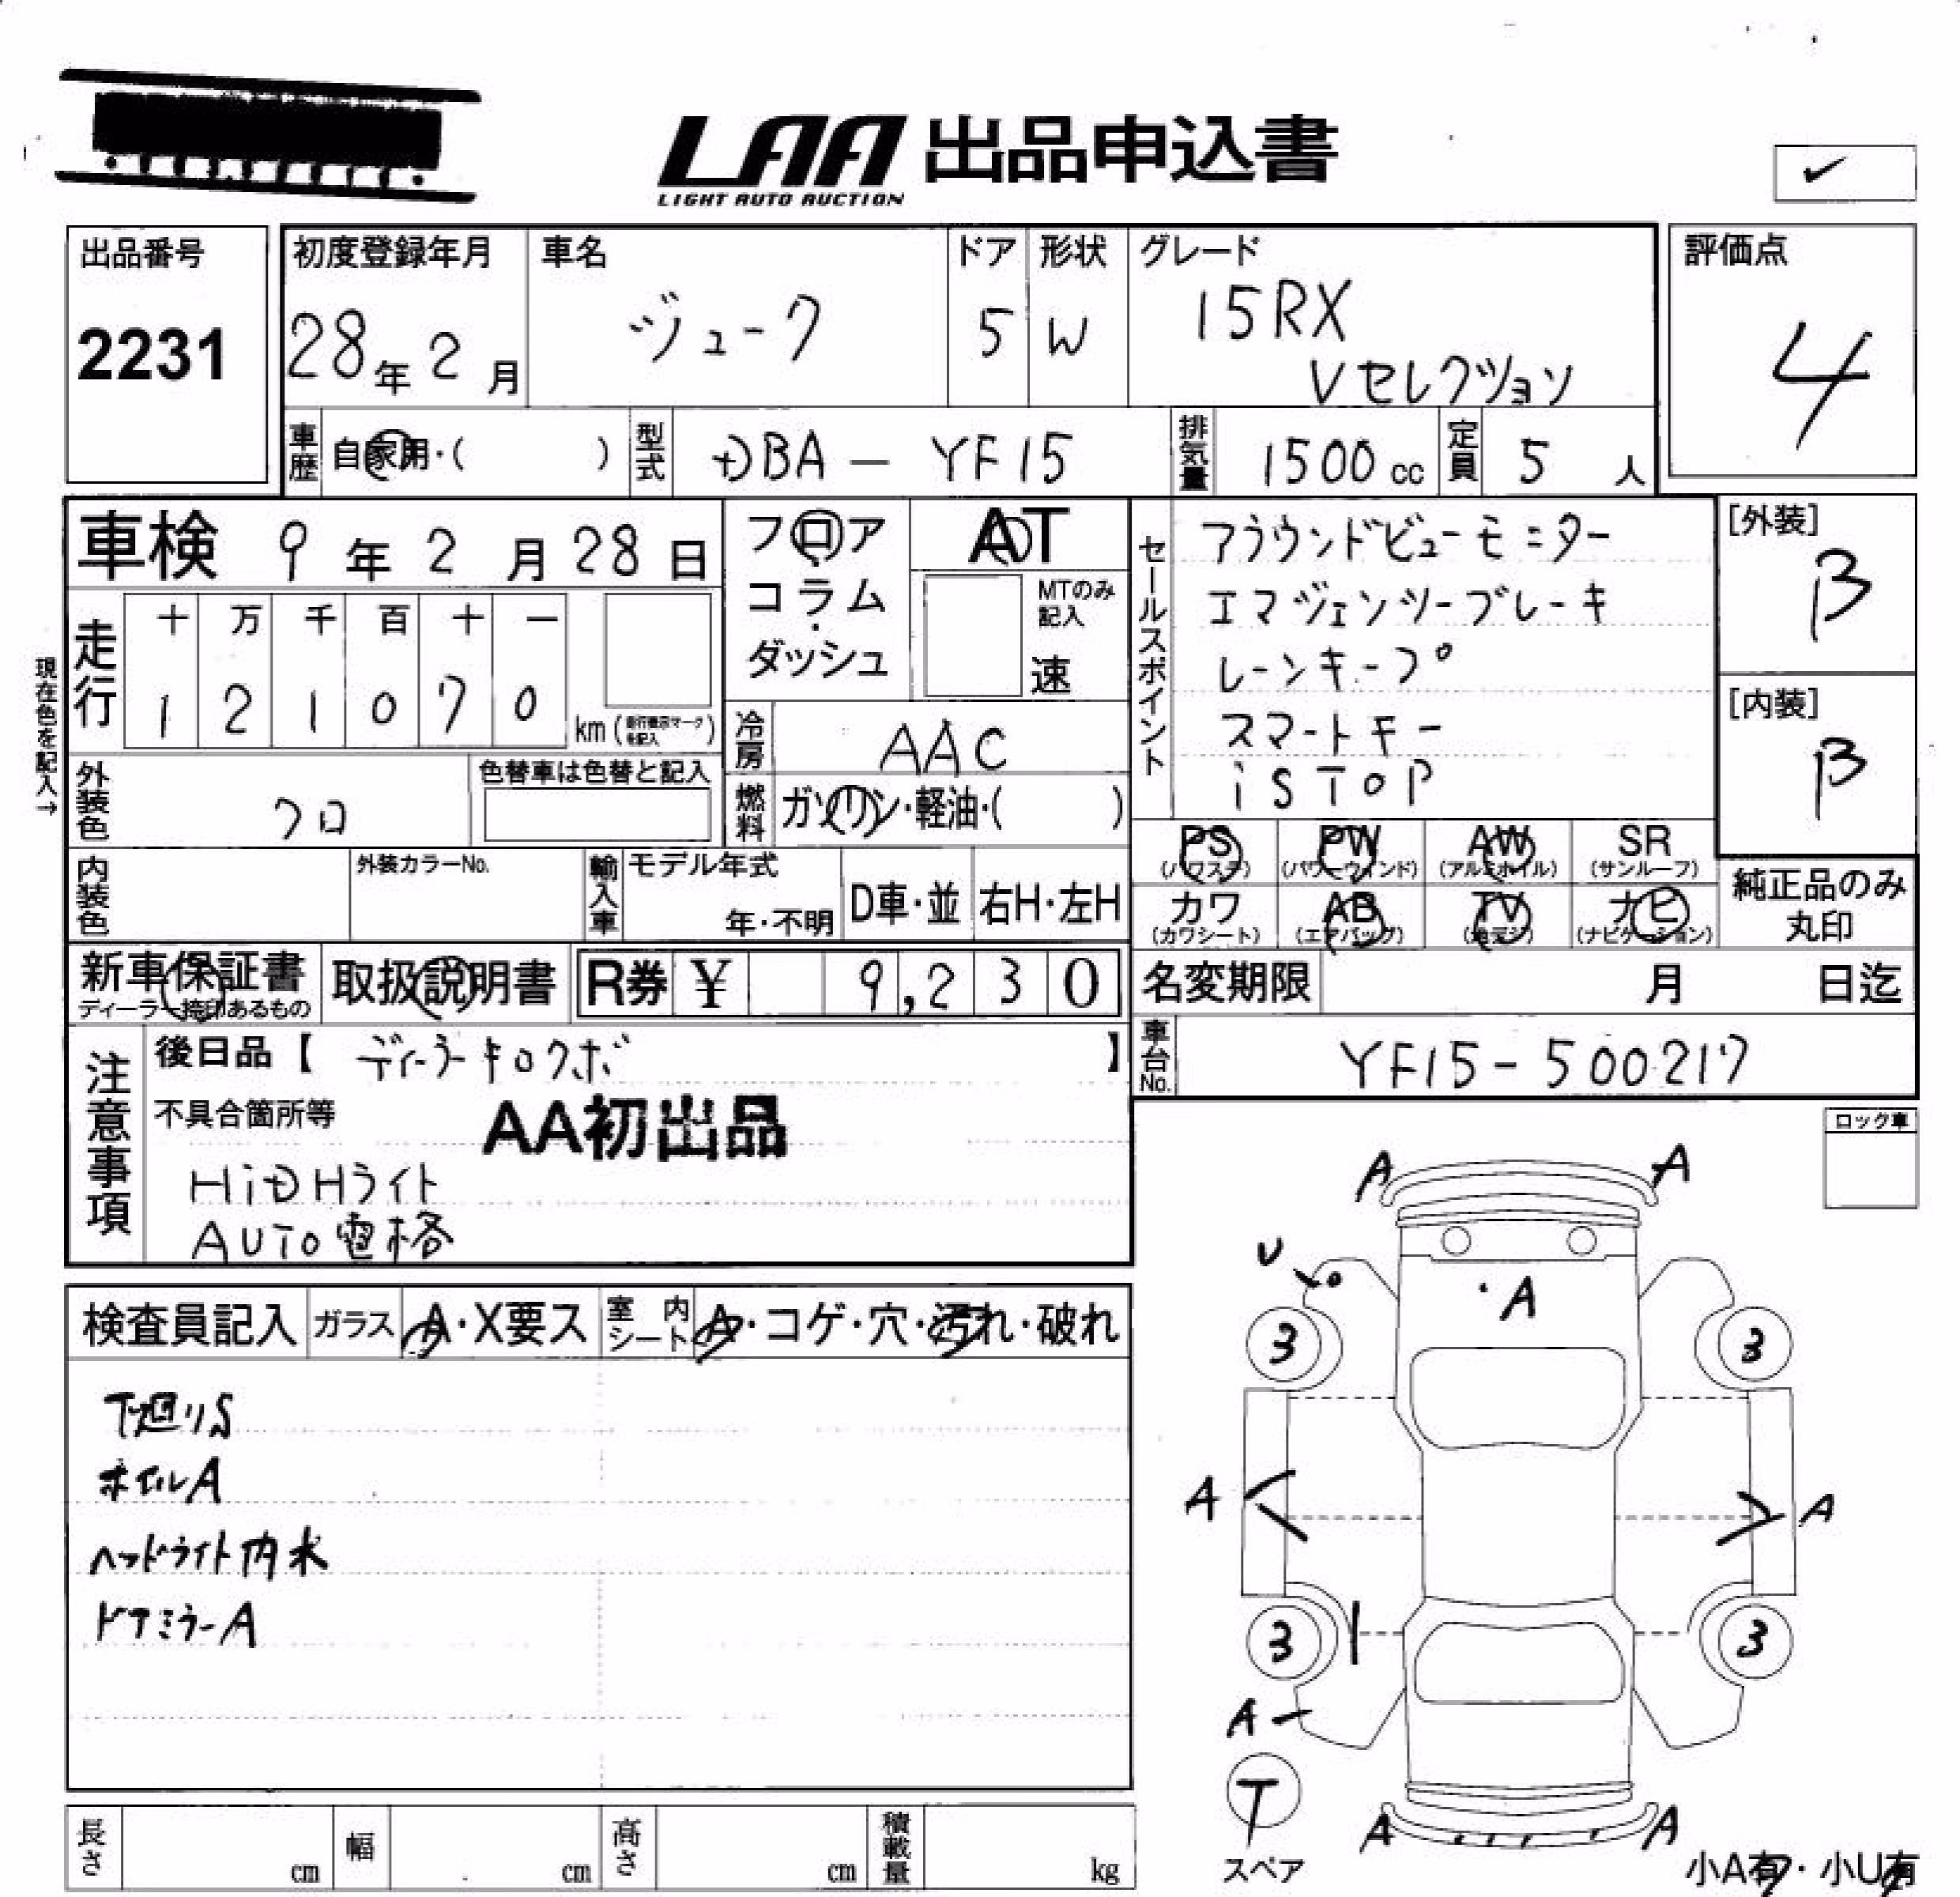 LAA 出品申込書
LIGHT AUTO AUCTION
出品番号
2231
初度登録年月
28年2月
車名
ジューク
ドア
5
形状
W
グレード
15RX
Vセレクション
評価点
4
車歴
自家用・( )
型式
DBA — YF15
排気量
1500cc
定員
5人
車検 9年2月28日
フロア
コラム
ダッシュ
AT
MTのみ
記入
速
セールスポイント
アラウンドビューモニター
エマジェンシーブレーキ
レーンキープ
スマートキー
iSTOP
[外装]
B
[内装]
B
現在色を記入→
走行
十 万 千 百 十 一
1 2 1 0 7 0
km (走行表示マークを記入)
冷房
AAC
外装色
クロ
色替車は色替と記入
燃料
ガソリン・軽油・( )
PS
(パワステ)
PW
(パワーウィンド)
AW
(アルミホイル)
SR
(サンルーフ)
内装色
外装カラーNo.
輸入車
モデル年式
年・不明
D車・並
右H・左H
カワ
(カワシート)
AB
(エアバッグ)
TV
(地デジ)
ナビ
(ナビゲーション)
純正品のみ
丸印
新車保証書
ディーラー捺印あるもの
取扱説明書
R券 ¥ 9,230
名変期限 月 日迄
車台No.
YF15-500217
注意事項
後日品【 ディーラーキロクボ 】
不具合箇所等
AA初出品
HiD Hライト
AUTO電格
ロック車
検査員記入
ガラス
A・X要ス
室内
シート
A・コゲ・穴・汚れ・破れ
下廻りS
ホイルA
ヘッドライト内水
ドアミラーA
A A
U
A
3 3
A A
3 3
A
T
スペア
A A
小A有・小U有
長さ cm
幅 cm
高さ cm
積載量 kg